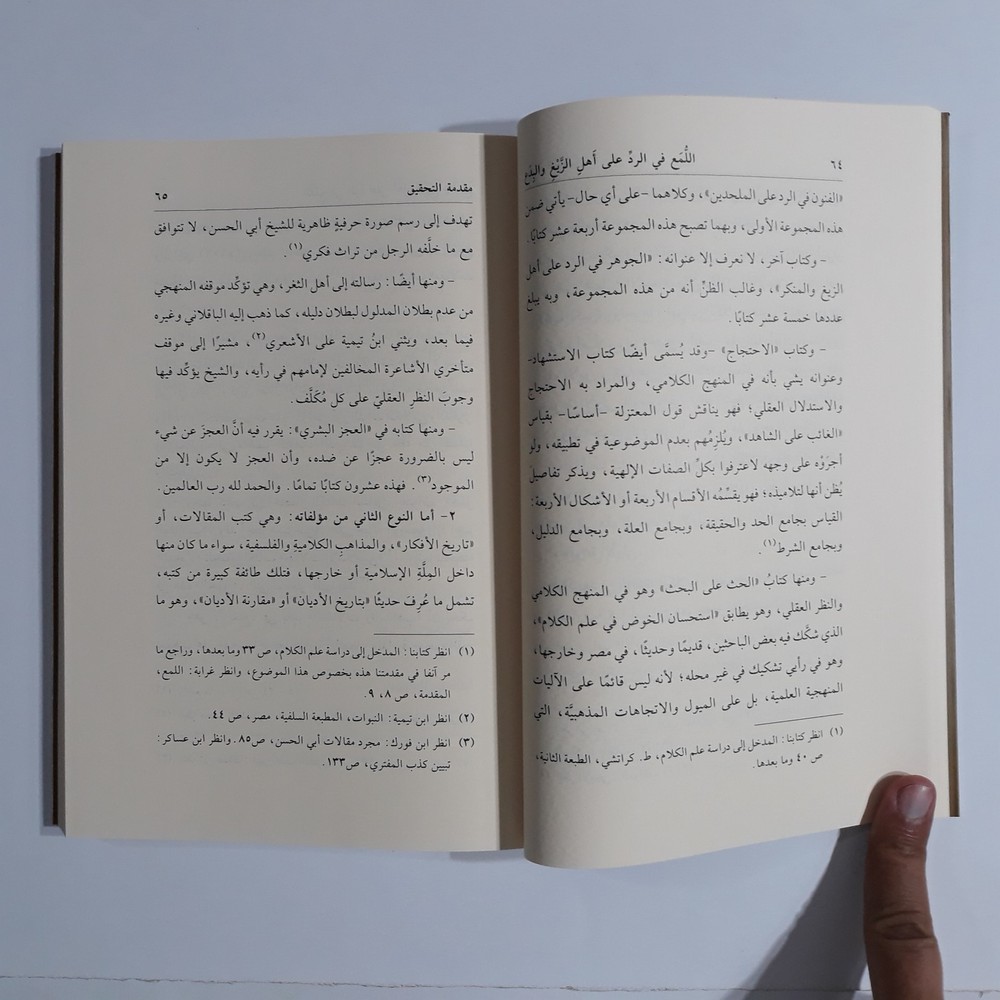 ٦٤
اللُّمَع في الردِّ على أهلِ الزَّيْغِ والبِدَع
«الفنون في الرد على الملحدين»، وكلاهما –على أي حال– يأتي ضمن
هذه المجموعة الأولى، وبهما تصبح هذه المجموعة أربعة عشر كتابًا.
– وكتاب آخر، لا نعرف إلا عنوانه: «الجوهر في الرد على أهل
الزيغ والمنكر»، وغالب الظنِّ أنه من هذه المجموعة، وبه يبلغ
عددها خمسة عشر كتابًا.
– وكتاب «الاحتجاج» –وقد يُسمَّى أيضًا كتاب الاستشهاد–
وعنوانه يشي بأنه في المنهج الكلامي، والمراد به الاحتجاج
والاستدلال العقلي؛ فهو يناقش قول المعتزلة –أساسًا– بقياس
«الغائب على الشاهد»، ويُلزِمُهم بعدم الموضوعية في تطبيقه، ولو
أجرَوْه على وجهه لاعترفوا بكلِّ الصفات الإلهية، ويذكر تفاصيلَ
يُظن أنها لتلاميذه؛ فهو يقسِّمُه الأقسام الأربعة أو الأشكال الأربعة:
القياس بجامع الحد والحقيقة، وبجامع العلة، وبجامع الدليل،
وبجامع الشرط(١).
– ومنها كتابُ «الحث على البحث» وهو في المنهج الكلامي
والنظر العقلي، وهو يطابق «استحسان الخوض في علم الكلام»،
الذي شكَّك فيه بعض الباحثين، قديمًا وحديثًا، في مصر وخارجها،
وهو في رأيي تشكيك في غير محله؛ لأنه ليس قائمًا على الآليات
المنهجية العلمية، بل على الميول والاتجاهات المذهبيَّة، التي
(١) انظر كتابنا: المدخل إلى دراسة علم الكلام، ط. كراتشي، الطبعة الثانية،
ص ٤٠ وما بعدها.
مقدمة التحقيق
٦٥
تهدف إلى رسم صورة حرفيةٍ ظاهرية للشيخ أبي الحسن، لا تتوافق
مع ما خلَّفه الرجل من تراث فكري(١).
– ومنها أيضًا: رسالته إلى أهل الثغر، وهي تؤكِّد موقفه المنهجي
من عدم بطلان المدلول لبطلان دليله، كما ذهب إليه الباقلاني وغيره
فيما بعد، ويثني ابنُ تيمية على الأشعري(٢)، مشيرًا إلى موقف
متأخري الأشاعرة المخالفين لإمامهم في رأيه، والشيخ يؤكِّد فيها
وجوبَ النظرِ العقليّ على كل مُكَلَّف.
– ومنها كتابه في «العجز البشري»: يقرر فيه أنَّ العجزَ عن شيء
ليس بالضرورة عجزًا عن ضده، وأن العجز لا يكون إلا من
الموجود(٣). فهذه عشرون كتابًا تمامًا. والحمد لله رب العالمين.
٢– أما النوع الثاني من مؤلفاته: وهي كتب المقالات، أو
«تاريخ الأفكار»، والمذاهبِ الكلاميةِ والفلسفية، سواء ما كان منها
داخل المِلَّةِ الإسلامية أو خارجها، فتلك طائفة كبيرة من كتبه،
تشمل ما عُرِفَ حديثًا «بتاريخ الأديان» أو «مقارنة الأديان»، وهو ما
(١) انظر كتابنا: المدخل إلى دراسة علم الكلام، ص ٣٣ وما بعدها، وراجع ما
مر آنفا في مقدمتنا هذه بخصوص هذا الموضوع، وانظر غرابة: اللمع،
المقدمة، ص ٨، ٩.
(٢) انظر ابن تيمية: النبوات، المطبعة السلفية، مصر، ص ٤٤.
(٣) انظر ابن فورك: مجرد مقالات أبي الحسن، ص٨٥. وانظر ابن عساكر:
تبيين كذب المفتري، ص١٣٣.